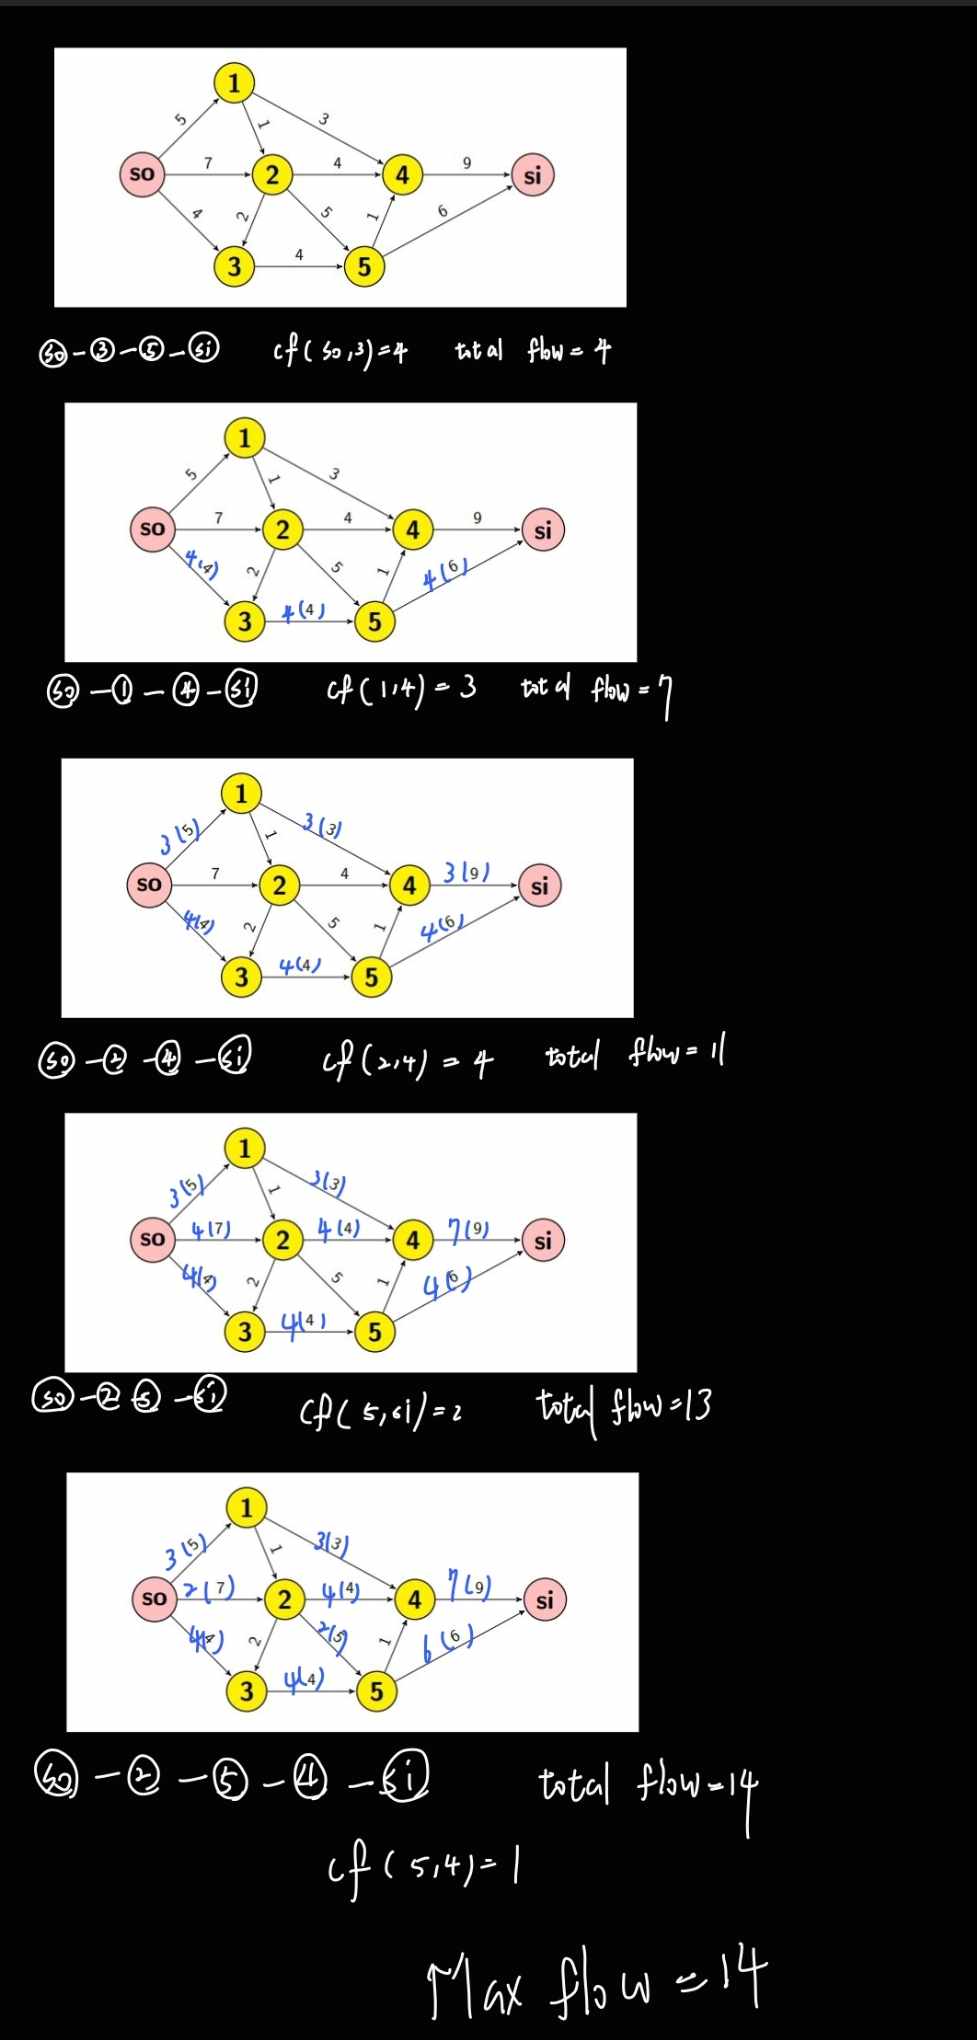 1
5 1 3
so 7 2 4 4 9 si
4 2 5 1 6
3 4 5
so - 3 - 5 - si cf(so,3)=4 total flow = 4
1
5 1 3
so 7 2 4 4 9 si
4(4) 2 5 1 4(6)
3 4(4) 5
so - 1 - 4 - si cf(1,4) = 3 total flow = 7
1
3(5) 1 3(3)
so 7 2 4 4 3(9) si
4(4) 2 5 1 4(6)
3 4(4) 5
so - 2 - 4 - si cf(2,4) = 4 total flow = 11
1
3(5) 1 3(3)
so 4(7) 2 4(4) 4 7(9) si
4(4) 2 5 1 4(6)
3 4(4) 5
so - 2 5 - si cf(5,si)=2 total flow=13
1
3(5) 1 3(3)
so 2(7) 2 4(4) 4 7(9) si
4(4) 2 2(5) 1 6(6)
3 4(4) 5
so - 2 - 5 - 4 - si total flow=14
cf(5,4)=1
Max flow = 14